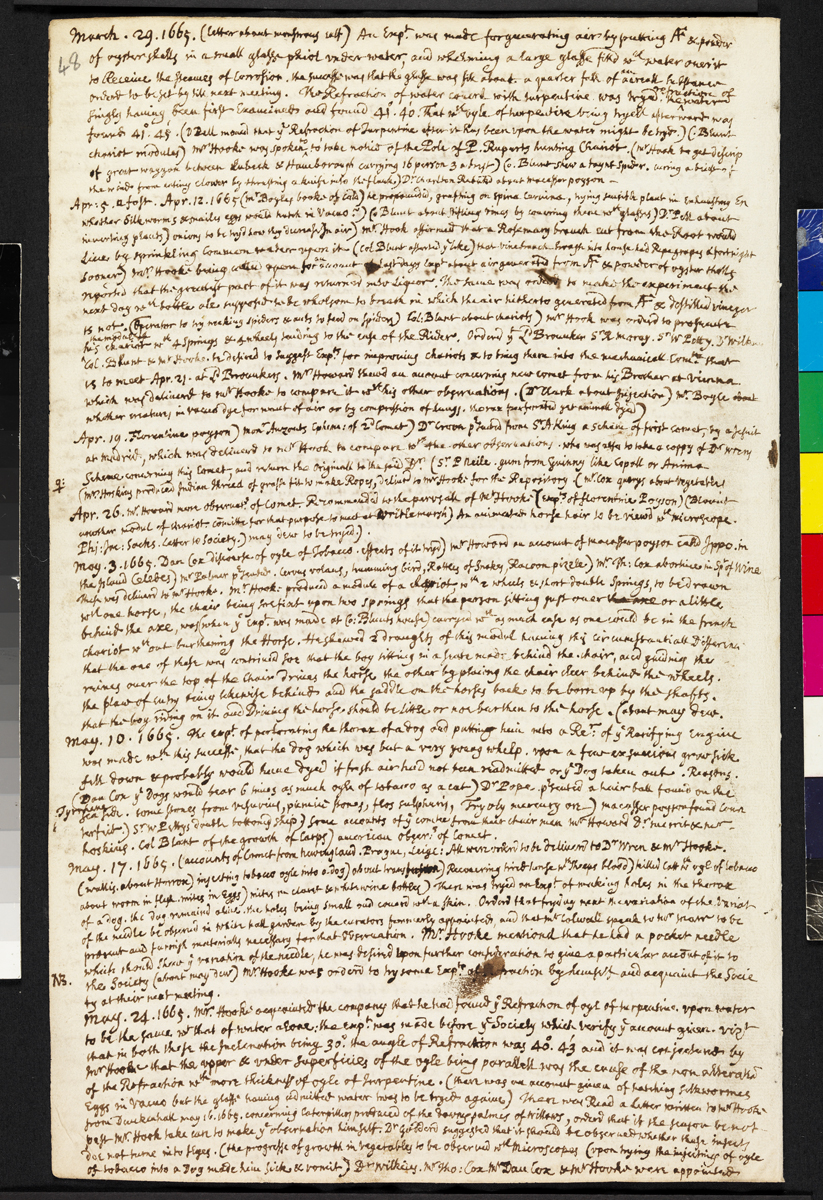 48
March. 29. 1665. (letter about monstrous calf) An Expt. was made for generating air by putting AF & powder
of oyster shells in a small glasse phiol under water, and whelming a large glasse filld wth water over it
to Receive the steames of Corrosion. the successe was that the glasse was fild about a quarter full of an aireall substance
orderd to be set by till next meeting. The Refraction of water coverd with turpentine was tryed. the refraction of
singly having been first Examined and found 41°. 40. That wth oyle of turpentine being tryed afterward was
found 41°. 45. (Dr Pell moued that ye Refraction of Turpentine after it has been upon the water might be tryd.) (Co: Blunt
chariot modules) Mr Hooke was spoken to take notice of the Pole of P. Ruperts hunting Chariot. (Mr Hook to get descrip
of great waggon between Lubeck & Hamborough carrying 16 person 3 a brest) (Co. Blunt saw a taynt spider. curing a beast
the winde from eating clover by thrusting a knife into the flank) Dr. Charlton Related about macassar poyson —
Apr: 5. a fast. Apr. 12. 1665 (Mr Boyles booke of Cold) he propounded, grafting on spina Cervina, trying sensible plant in Exhausting En
whether silkworms & snailes eggs would hatch in Vacuo:) (Co: Blunt about Ripening vines by covering them wth glasses) Dr. Pell about
inverting plants) onions to be tryd how they Increase In air) Mr. Hook affirmed that a Rosemary branch cut from the Root would
Live by sprinkling Common water upon it (Col Blunt affirmd ye like) that vine branch brought into house had Ripe grapes a fortnight
sooner) Mr. Hooke being calld upon for an account of last days Expt about air generated from AF & powder of oyster shells
reported that the greatest part of it was returned into Liquor. The same was orderd to make the experiment the
next day wth bottle ale supposed to be wholsom to breath in which the air hitherto generated from AF & destilled vinegar
is not. (Operator to try making spiders & auts to feed on spiders) Col: Blunt about chariots) Mr Hook was orderd to prosecute
the model of
his chariot wth 4 Springs & 4 wheels tending to the ease of the Rider. Orderd yt Ld Brounker Sr R Moray. Sr W Petty, Dr Wilkins
Col. Blunt & Mr Hooke. be desired to suggest Expts for improving chariots & to bring them into the mechanicall Comtte that
is to meet Apr. 21. at Ld Brounkers. Mr Howard shewd an account concerning new comet from his Brother at Vienna
which was deliverd to Mr Hooke to compare it wth his other observations. (Dr Clark about Injection) Mr. Boyle about
whether creatures in vacuo dye for want of air or by compression of lungs. thorax perforated yet animals dyed)
Apr. 19. Florentine poyson) monr Auzouts Ephem: of 2d Comet) Dr Croon prsented from Sr A King a scheme of first comet, by a Jesuit
at madrid, which was deliverd to Mr Hook to compare wth the other observations. who was also to take a coppy of Dr Wrens
Scheme concerning this Comet, and return the Originall to the said Dr. (Sr. P Neile. gum from Guinny like Copall or Anima
(Mr Hoskins produced Indian thread of grasse fit to make Ropes, deliverd to Mr Hooke for the Repository (Mr. Cox querys about vegetables
Apr. 26. Mr. Howard more observats of Comet. Recommended to the perusall of Mr Hooke (Expt of florentine Poyson) (Co Blount
another modul of chariot comittee for that purpose to meet at Writlemarsh) An animated horse hair to be viewd wth microscope.
Phi: Jac: Sachs. Letter to Society.) may dew to be tryed.)
May. 3. 1665. Dan Cox discourse of oyle of Tobacco. effects of it tryd) Mr Howard an account of macasser poyson calld Ippo. in
the Island Celebes) Mr Palmer prsented. Cervus volans, humming bird, Rattles of Snakes, Racoon pizzle) Mr. Th: Cox abortives in Spt of Wine
these was deliverd to Mr Hooke. Mr. Hooke produced a module of a chariot wth 2 wheels & short double springs, to be drawn
with one horse, the chair being soe fixt upon two springs that the person sitting just over the axe or a little
behind the axe, was when ye Expt. was made at Co: Blunts house carryed wth as much ease as one could be in the french
chariot wthout burthening the Horse. He shewed 2 draughts of this modul having this circumstantiall Differenc.
that the one of these was contrived soe that the boy sitting in a seate made behind the chair, and guiding the
reines over the top of the Chair drives the horse the other by placing the chair cleer behind the wheels.
the place of entry being likewise behind and the saddle on the horses back to be born up by the shafts.
that the boy riding on it and Driving the horse should be little or noe burthen to the horse. (about may dew.
May. 10. 1665. The expt. of perforating the thorax of a dog and putting him into a Rer. of ye Rarifying Engine
was made wth this successe, that the dog which was but a very young whelp. upon a few exsuccions grew sick
fell down & probably would have dyed if fresh air had not been readmitted or ye Dog taken out. Reasons.
(Dan Cox yt Dogs would bear 6 times as much oyle of tobacco as a cat) Dr Pope. prsented a hair ball found on the
Tyrrhene
sea side. some stones from vesuvius, pumice stones, flos sulphuris, Fryoly mercury ore) macasser poyson found Coun
terfeit) Sr W Pettys double bottomd ship) some accounts of ye comet from their chair men Mr Howard Dr merrit & mr
hoskins. Col Blunt of the growth of Carps) american obserns of Comet.
May. 17. 1665. (accounts of Comet from new england. Prague, Leige: All were orderd to be Deliverd to Dr Wren & Mr Hooke.
(wallis. about Horrox) injecting tobacco oyle into a dog) about transfusion) Recovering tired horse wth Sheeps blood) killed catt wth oyl of tobacco
about worm in flesh. mites in Eggs) mites on claret & white wine bottles) There was tryed an Expt. of making holes in the thorax
of a dog. the dog remained alive. the holes being small and coverd wth a skin. Orderd that fryday next the variation of the Variat
of the needle be observed in white hall garden by the curators formerly appointed and that Mr Colwall speak to Mr Marr to be
present and furnish materialls necessary for that observation. Mr Hooke mentiond that he had a pocket needle
which should shew ye variation of the needle, he was desired upon further consideration to give a particular account of it to
NB.
the Society (about may dew) Mr Hooke was orderd to try some Expts of Refraction by himself and acquaint the Socie
ty at their next meeting.
May. 24. 1665. Mr. Hooke acquainted the company that he had found ye Refraction of oyl of turpentine. upon water
to be the same wth that of water alone: the expt was made before ye Society which verify'd ye account given. vizt
that in both those the Inclenation being 30°. the angle of Refraction was 40°. 43 and it was conjectured by
Mr Hooke that the upper & under superficies of the oyle being parallell was the cause of the non alteration
of the Refraction wth more thicknesse of oyle of Turpentine. (there was an account given of hatching silkwormes
Eggs in vacuo but the glasse having admitted water was to be tryed againe) There was Read a letter written to Mr Hooke
from Duuckenhalt may 16. 1665. concerning Caterpillers produced of the downy palmes of Willows, orderd that if the season be not
past Mr. Hook take care to make ye observation himself. Dr Goddard suggested that it should be observed whether these insects
doe not turne into flyes. (the progresse of growth in vegetables to be observed wth Microscopes (upon trying the injecting of oyle
of tobacco into a Dog made him sick & vomit) Dr Wilkins. Mr Tho: Cox Mr Dan Cox & Mr Hooke were appointed